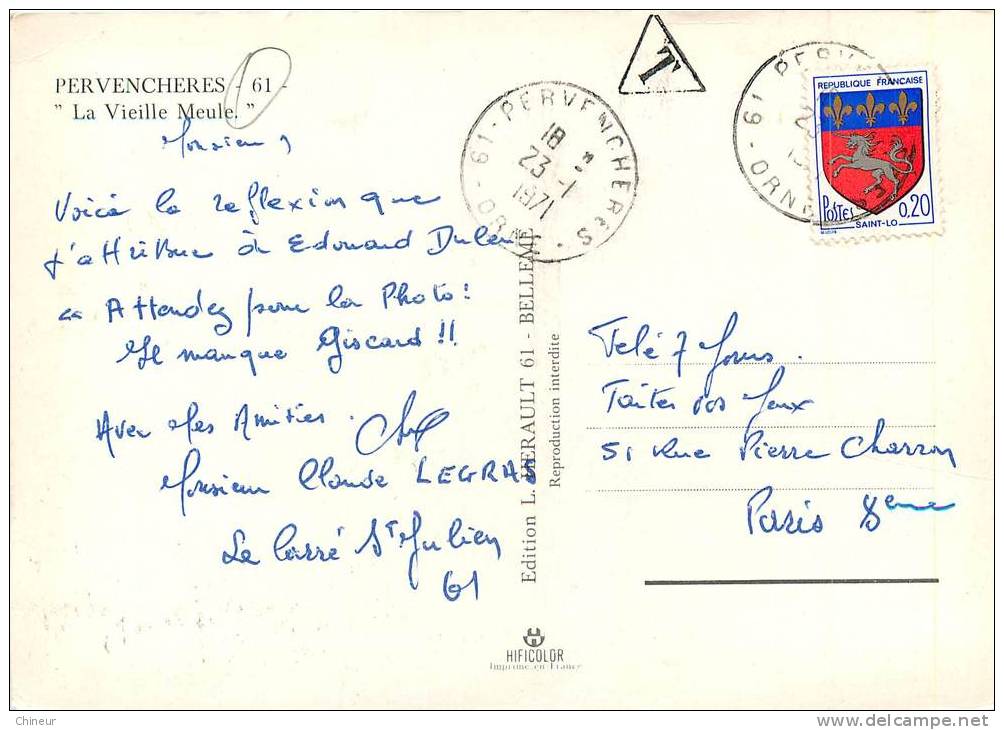 PERVENCHERES - 61 -
" La Vieille Meule. "
Monsieur,
Voici la reflexion que
j'attribue à Edouard Duleu
" Attendez pour la Photo!
Il manque Giscard !!
Avec Mes Amitiés.
Monsieur Claude LEGRAS
Le Carré St Julien
61
Edition L. HERAULT 61 - BELLEME
Reproduction interdite
HIFICOLOR
Imprimé en France
61 - PERVENCHERES - ORNE
18 H
23 - 1
1971
T
61 PERVE
ORNE
REPUBLIQUE FRANCAISE
POSTES
0,20
SAINT-LO
Télé 7 Jours.
Faites vos Jeux
51 Rue Pierre Charron
Paris 8eme
Chineur
delcampe.net